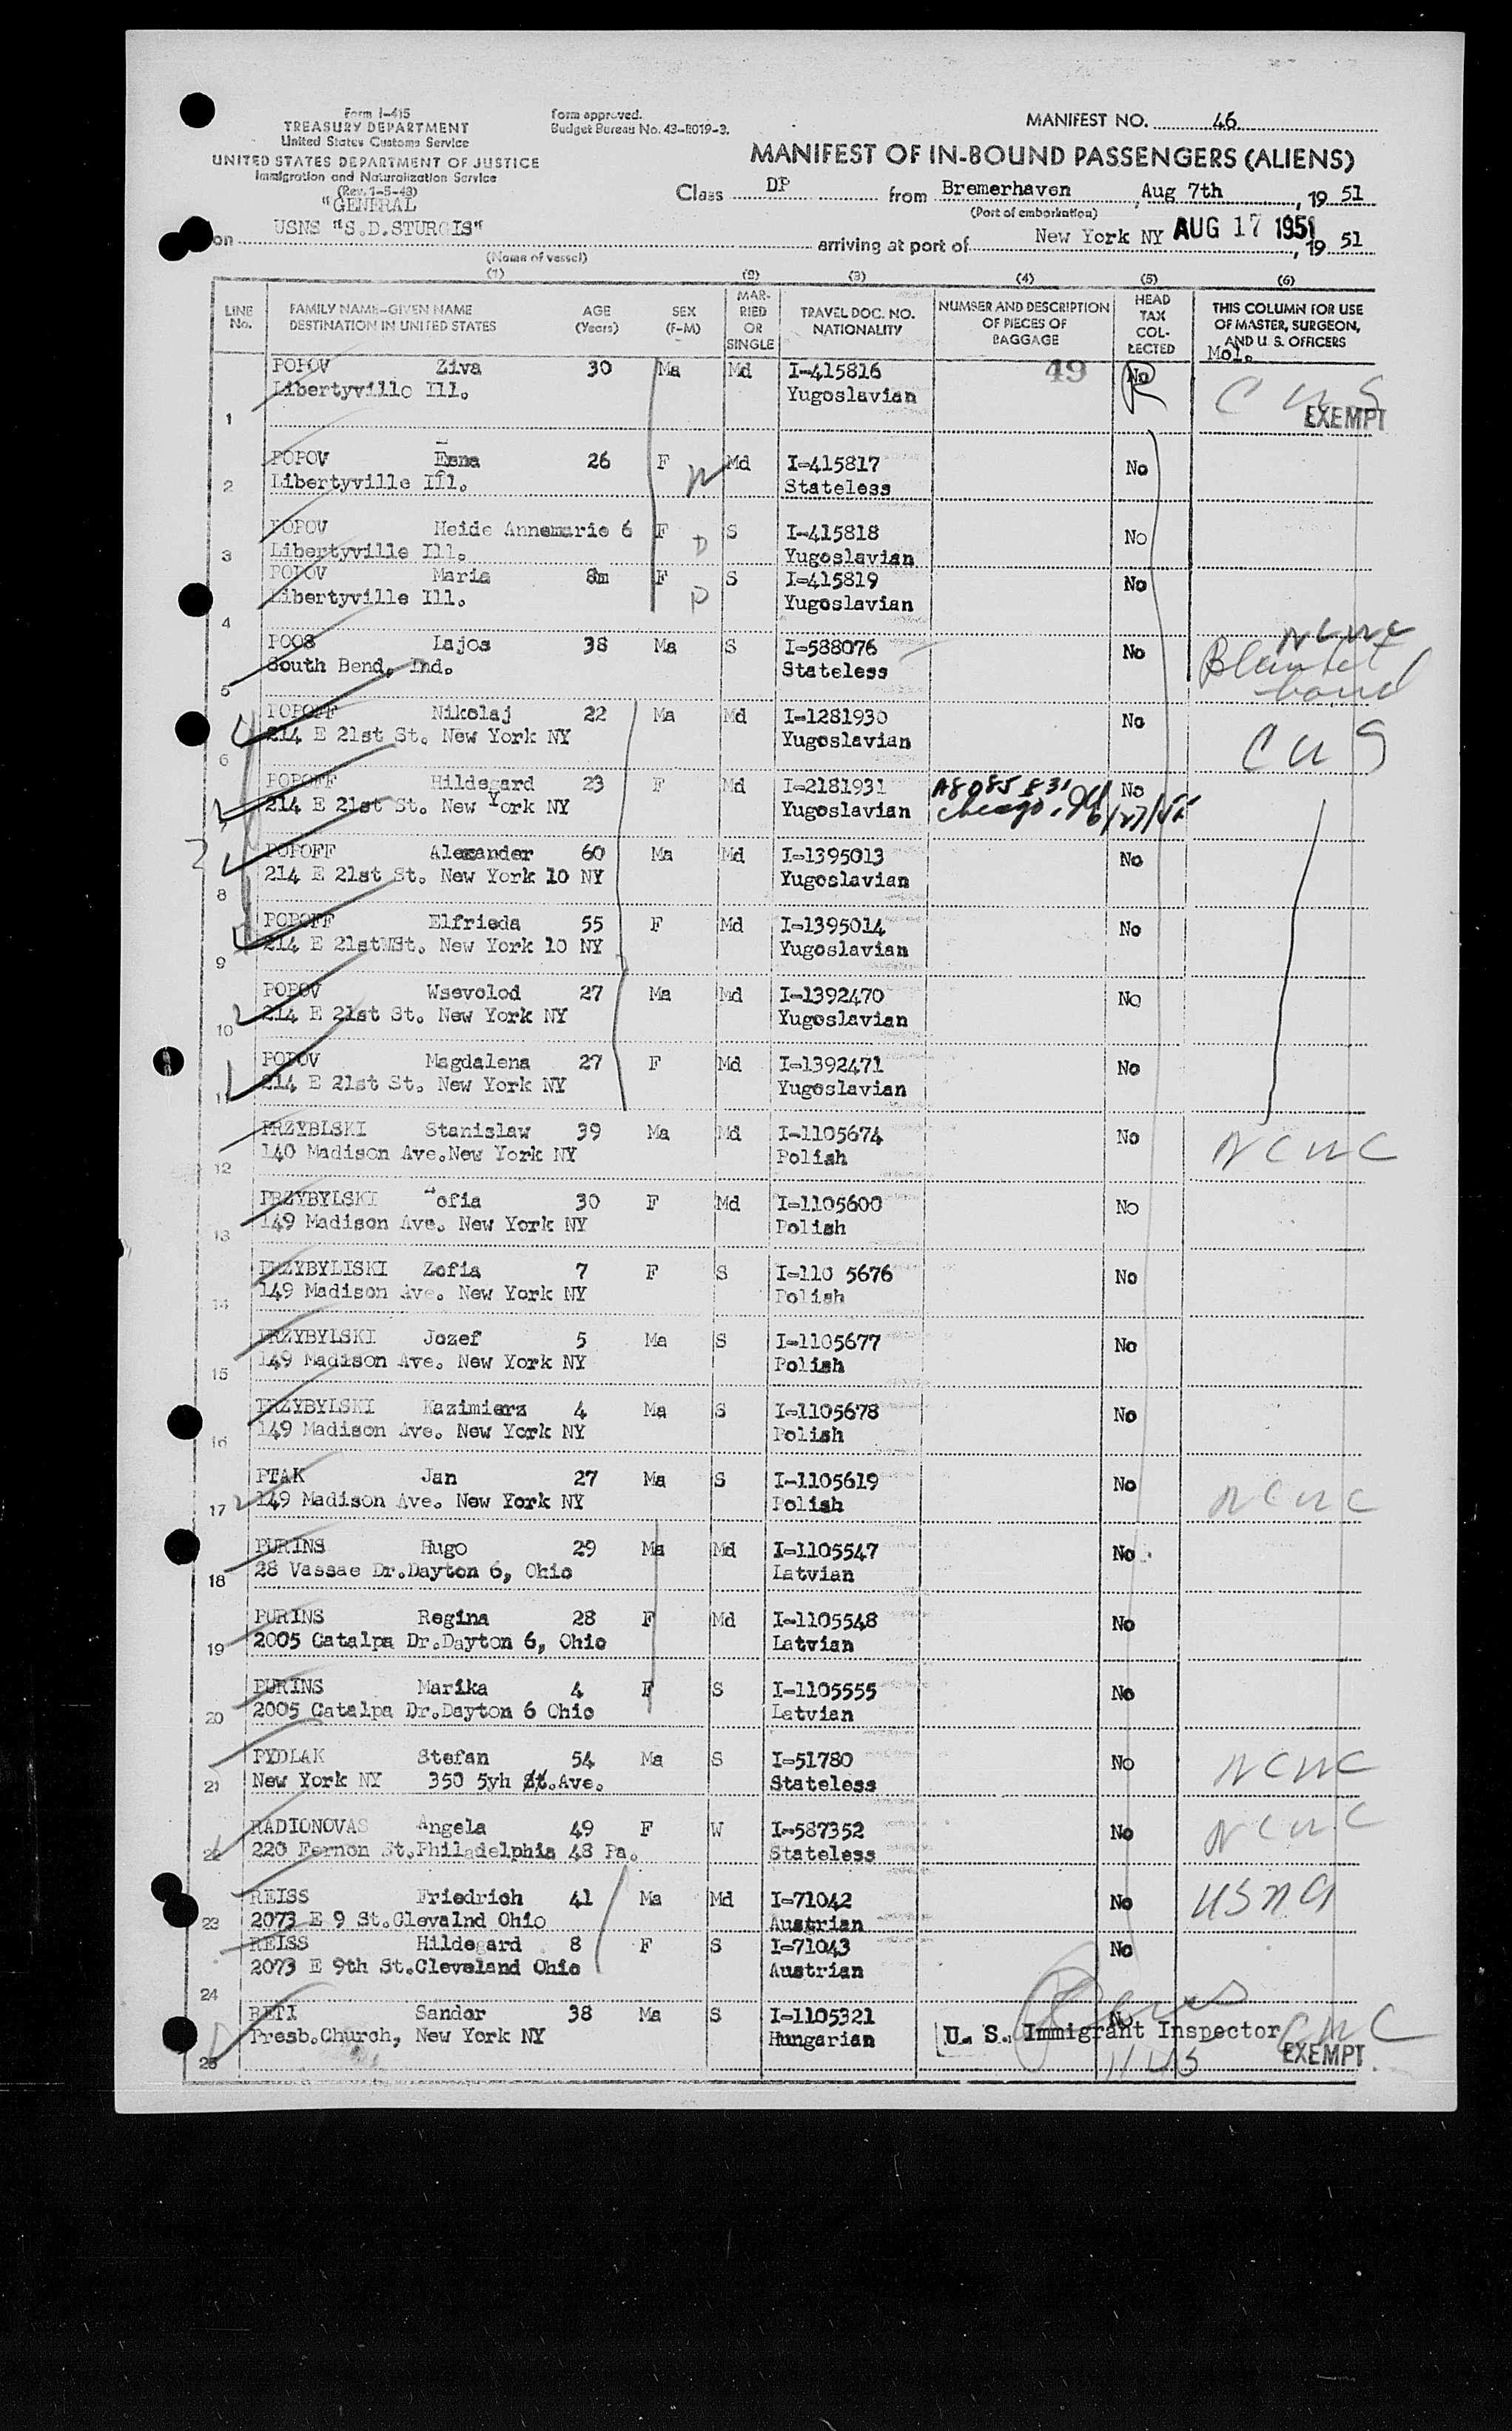 Form I-415
TREASURY DEPARTMENT
United States Customs Service
UNITED STATES DEPARTMENT OF JUSTICE
Immigration and Naturalization Service
(Rev. 1-5-48)
Form approved.
Budget Bureau No. 43-R019-3.
MANIFEST NO. 46
MANIFEST OF IN-BOUND PASSENGERS (ALIENS)
Class DP from Bremerhaven, Aug 7th, 19 51
(Port of embarkation)
"GENERAL
on USNS "S.D.STURGIS" arriving at port of New York NY AUG 17 1951, 19 51
(Name of vessel)
(1) (2) (3) (4) (5) (6)
LINE No. FAMILY NAME—GIVEN NAME DESTINATION IN UNITED STATES AGE (Years) SEX (F-M) MARRIED OR SINGLE TRAVEL DOC. NO. NATIONALITY NUMBER AND DESCRIPTION OF PIECES OF BAGGAGE HEAD TAX COLLECTED THIS COLUMN FOR USE OF MASTER, SURGEON, AND U. S. OFFICERS
Mol.
POPOV Ziva 30 Ma Md I-415816 49 No
Libertyville Ill. Yugoslavian C W S
1 EXEMPT
POPOV Erna 26 F Md I-415817 No
2 Libertyville Ill. W Stateless
POPOV Heide Annemarie 6 F S I-415818 No
3 Libertyville Ill. D Yugoslavian
POPOV Maria 8m F S I-415819 No
Libertyville Ill. D Yugoslavian
4
POOS Lajos 38 Ma S I-588076 No NCWC
South Bend, Ind. Stateless Blanket bond
5
POPOFF Nikolaj 22 Ma Md I-1281930 No
214 E 21st St. New York NY Yugoslavian C W S
6
POPOFF Hildegard 23 F Md I-2181931 A8085831 No
214 E 21st St. New York NY Yugoslavian Chicago, Ill
7
POPOFF Alexander 60 Ma Md I-1395013 No
214 E 21st St. New York 10 NY Yugoslavian
8
POPOFF Elfrieda 55 F Md I-1395014 No
214 E 21stWSt. New York 10 NY Yugoslavian
9
POPOV Wsevolod 27 Ma Md I-1392470 No
10 214 E 21st St. New York NY Yugoslavian
POPOV Magdalena 27 F Md I-1392471 No
11 214 E 21st St. New York NY Yugoslavian
PRZYBLSKI Stanislaw 39 Ma Md I-1105674 No N C W C
12 140 Madison Ave.New York NY Polish
PRZYBYLSKI Zofia 30 F Md I-1105600 No
13 149 Madison Ave. New York NY Polish
PRZYBYLISKI Zofia 7 F S I-110 5676 No
14 149 Madison Ave. New York NY Polish
PRZYBYLSKI Jozef 5 Ma S I-1105677 No
15 149 Madison Ave. New York NY Polish
PRZYBYLSKI Kazimierz 4 Ma S I-1105678 No
16 149 Madison Ave. New York NY Polish
PTAK Jan 27 Ma S I-1105619 No N C W C
17 149 Madison Ave. New York NY Polish
PURINS Hugo 29 Ma Md I-1105547 No
18 28 Vassae Dr.Dayton 6, Ohio Latvian
PURINS Regina 28 F Md I-1105548 No
19 2005 Catalpa Dr.Dayton 6, Ohio Latvian
PURINS Marika 4 F S I-1105555 No
20 2005 Catalpa Dr.Dayton 6 Ohio Latvian
PYDLAK Stefan 54 Ma S I-51780 No N C W C
21 New York NY 350 5yh St.Ave. Stateless
RADIONOVAS Angela 49 F W I-587352 No N C W C
22 220 Fernon St.Philadelphia 48 Pa. Stateless
REISS Friedrich 41 Ma Md I-71042 No USNA
23 2073 E 9 St.Clevalnd Ohio Austrian
REISS Hildegard 8 F S I-71043 No
2073 E 9th St.Cleveland Ohio Austrian
24
RETI Sandor 38 Ma S I-1105321 No
Presb.Church, New York NY Hungarian U. S. Immigrant Inspector C W C
25 EXEMPT